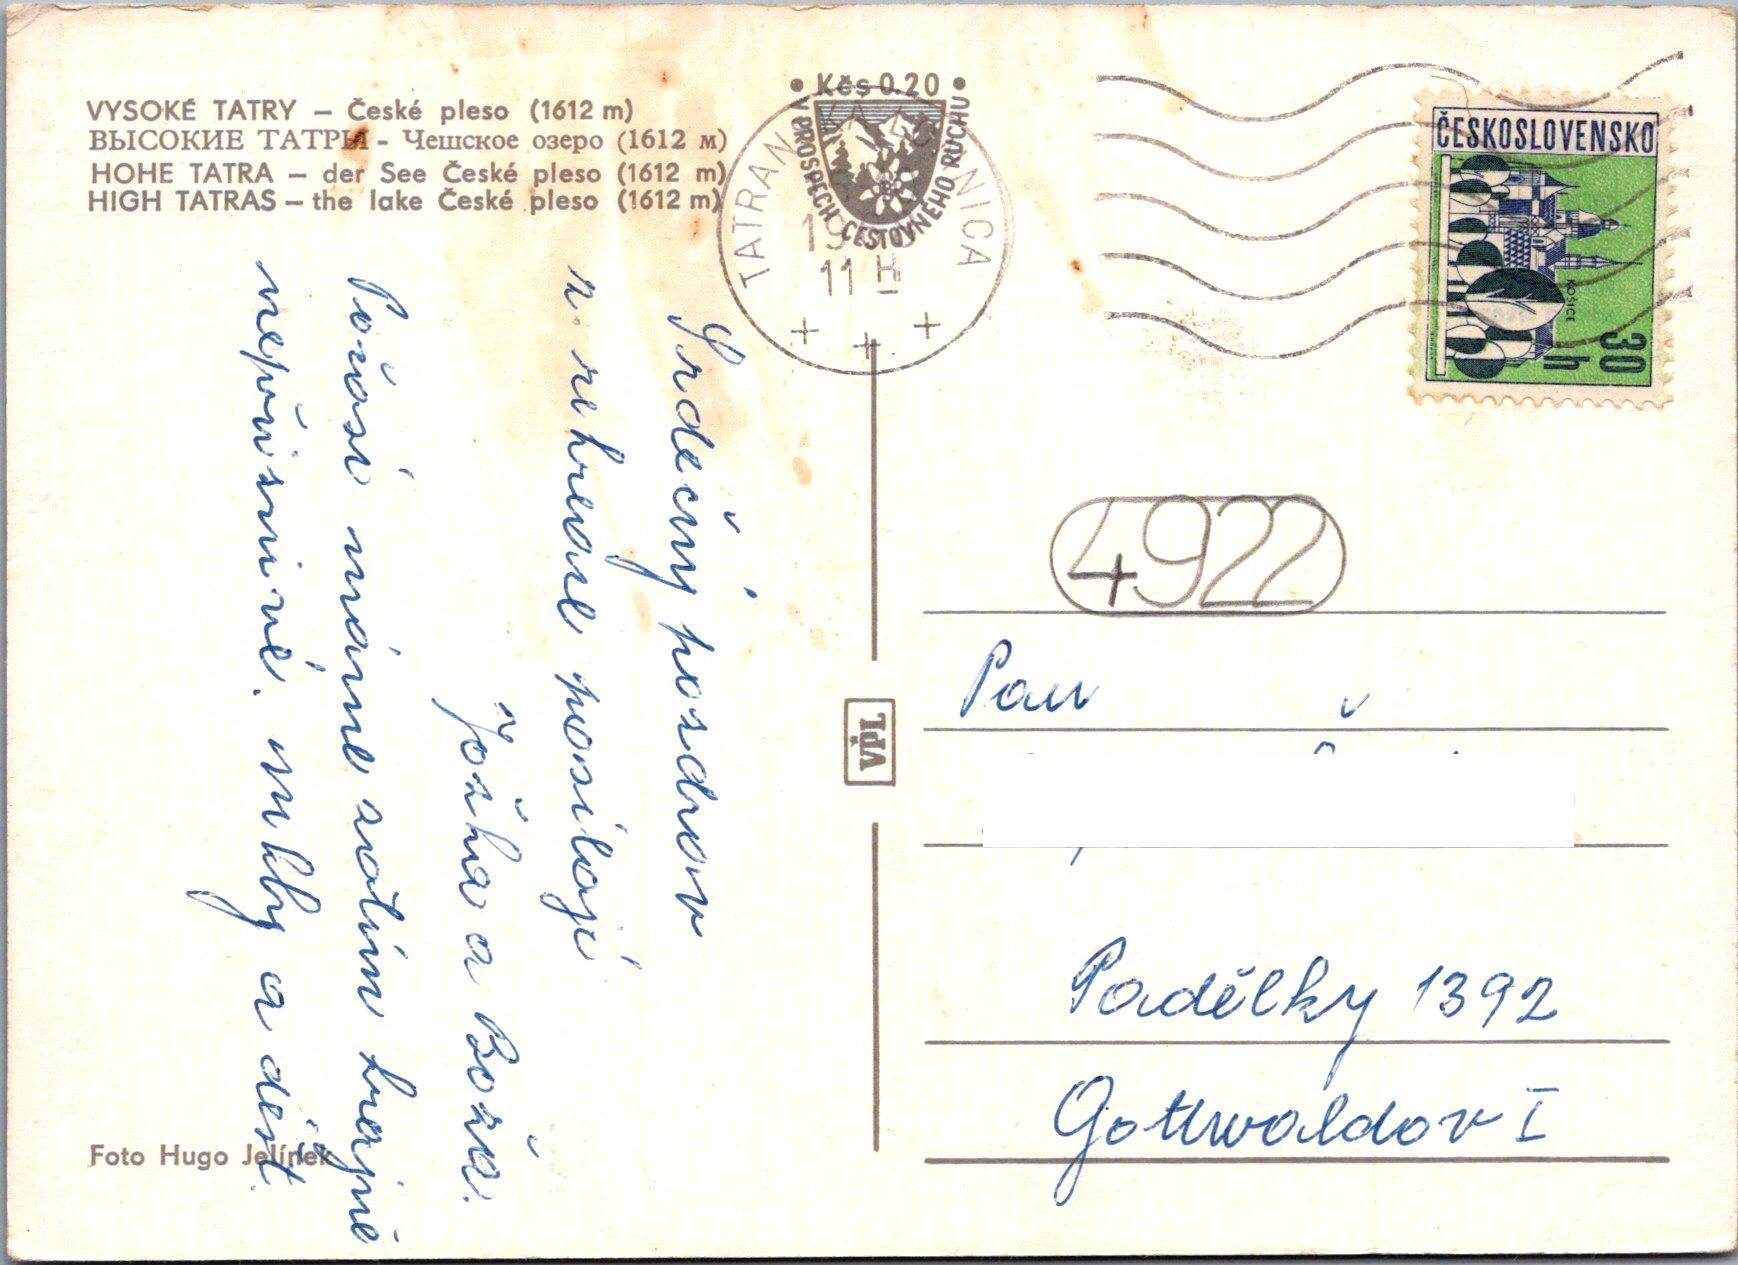 VYSOKÉ TATRY – České pleso (1612 m)
ВЫСОКИЕ ТАТРЫ - Чешское озеро (1612 м)
HOHE TATRA – der See České pleso (1612 m)
HIGH TATRAS – the lake České pleso (1612 m)
• Kčs 0.20 •
V PROSPĚCH CESTOVNÉHO RUCHU
TATRAN NICA
11 H
ČESKOSLOVENSKO
KOŠICE
30 h
Srdečný pozdrav
z rekreace posílají
Jožka a Boža.
Počasí máme zatím krajně
nepříznivé. mlhy a déšť.
4922
VPL
Pan
Padělky 1392
Gottwaldov I
Foto Hugo Jelínek